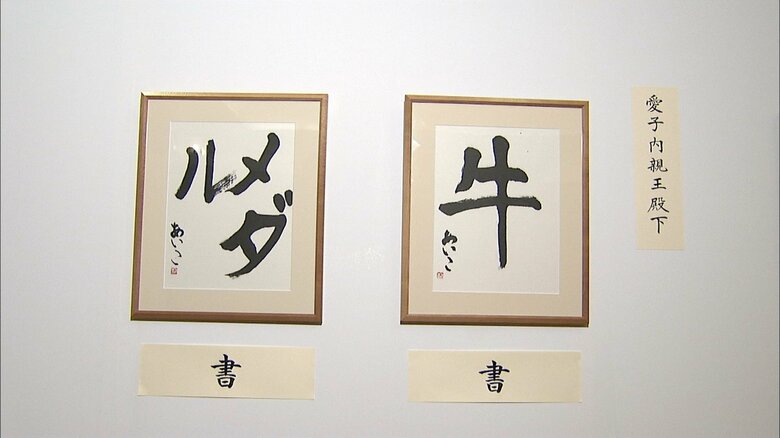 愛子内親王殿下
牛
あいこ
書
メダ
ル
あいこ
書